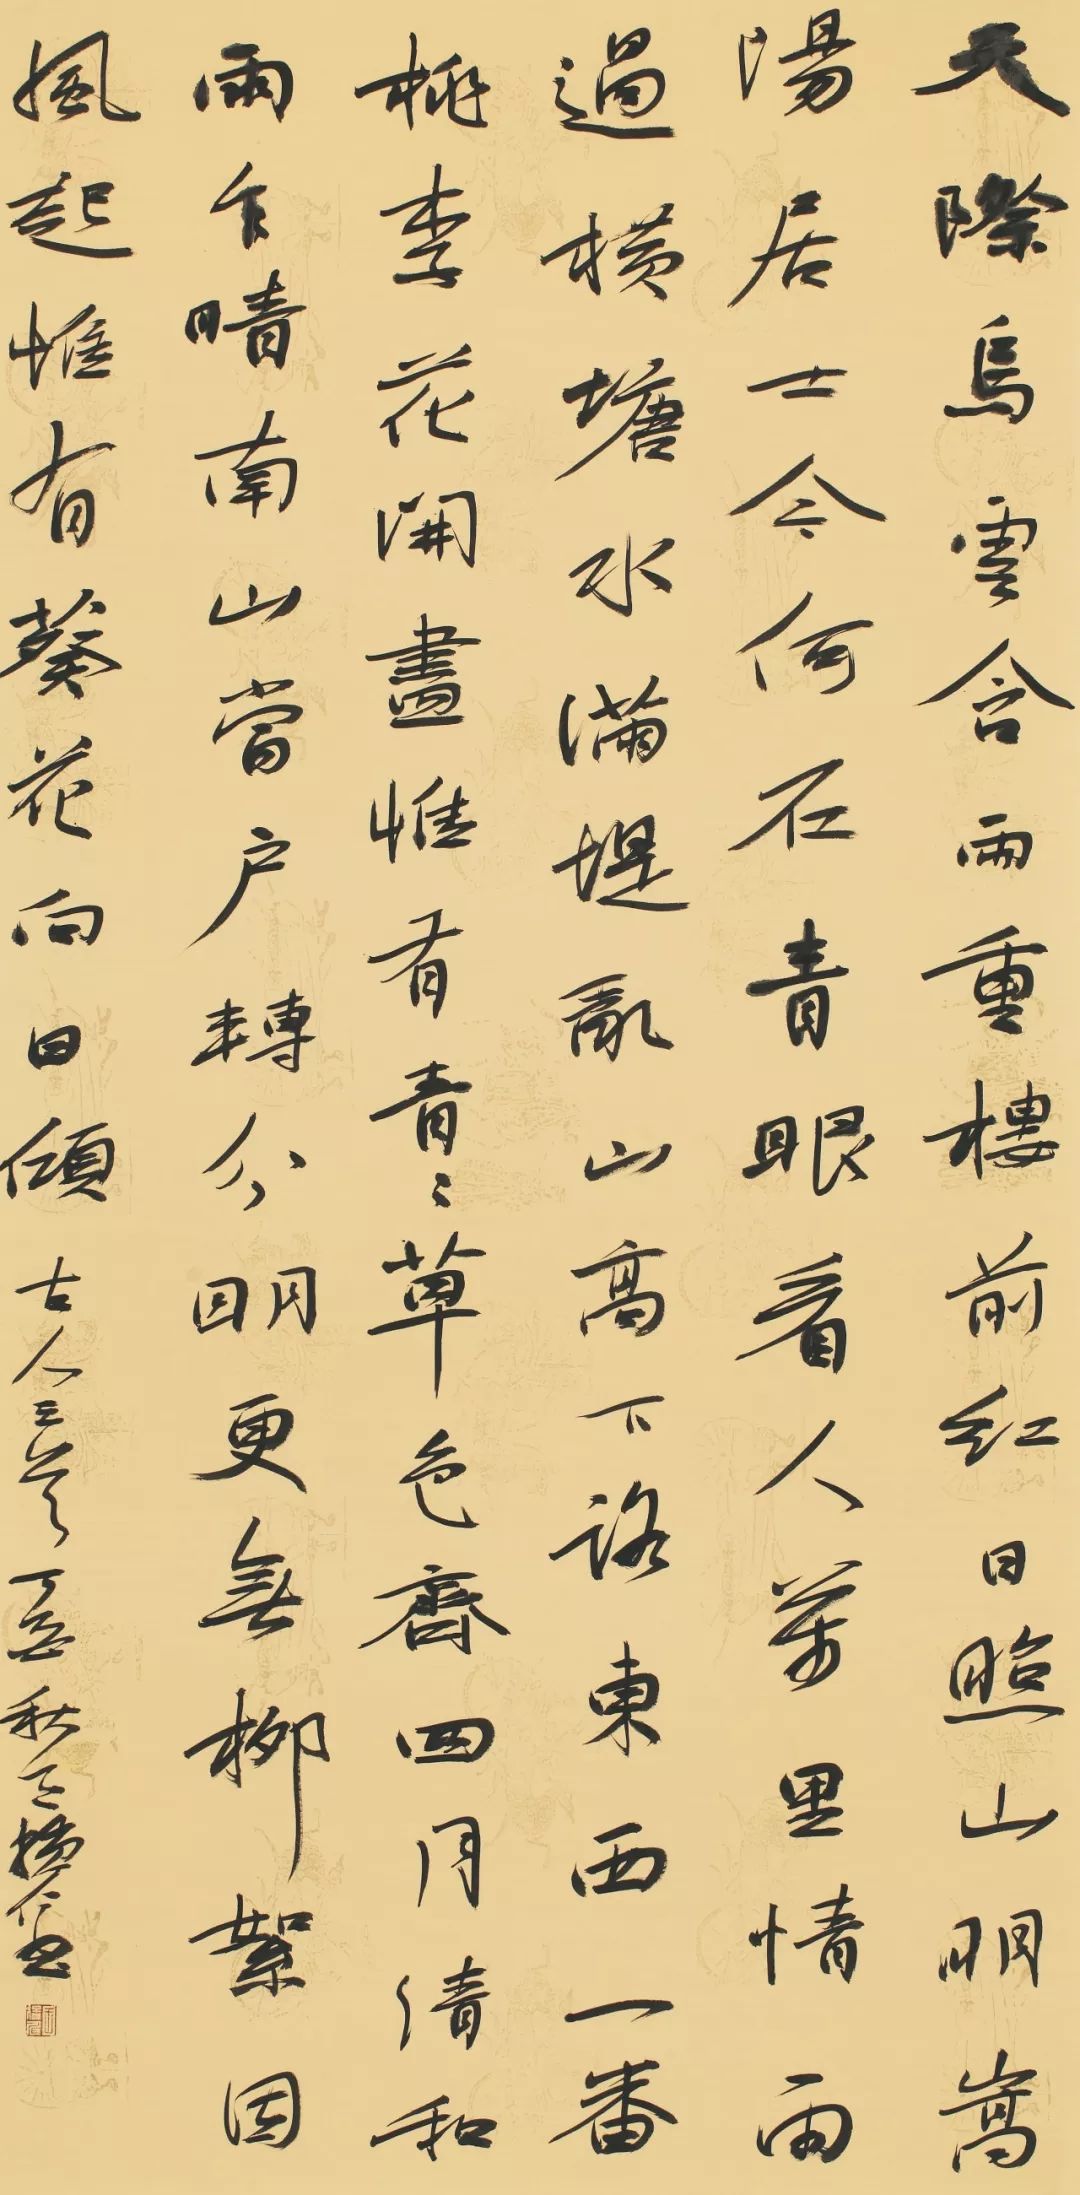 天際烏雲含雨重樓前紅日照山明嵩
陽居士今何在青眼看人萬里情雨
過橫塘水滿堤亂山高下路東西一番
桃李花開盡惟有青〻草色齊四月清和
雨乍晴南山當户轉分明更無柳絮因
風起惟有葵花向日傾 古人三首 秋